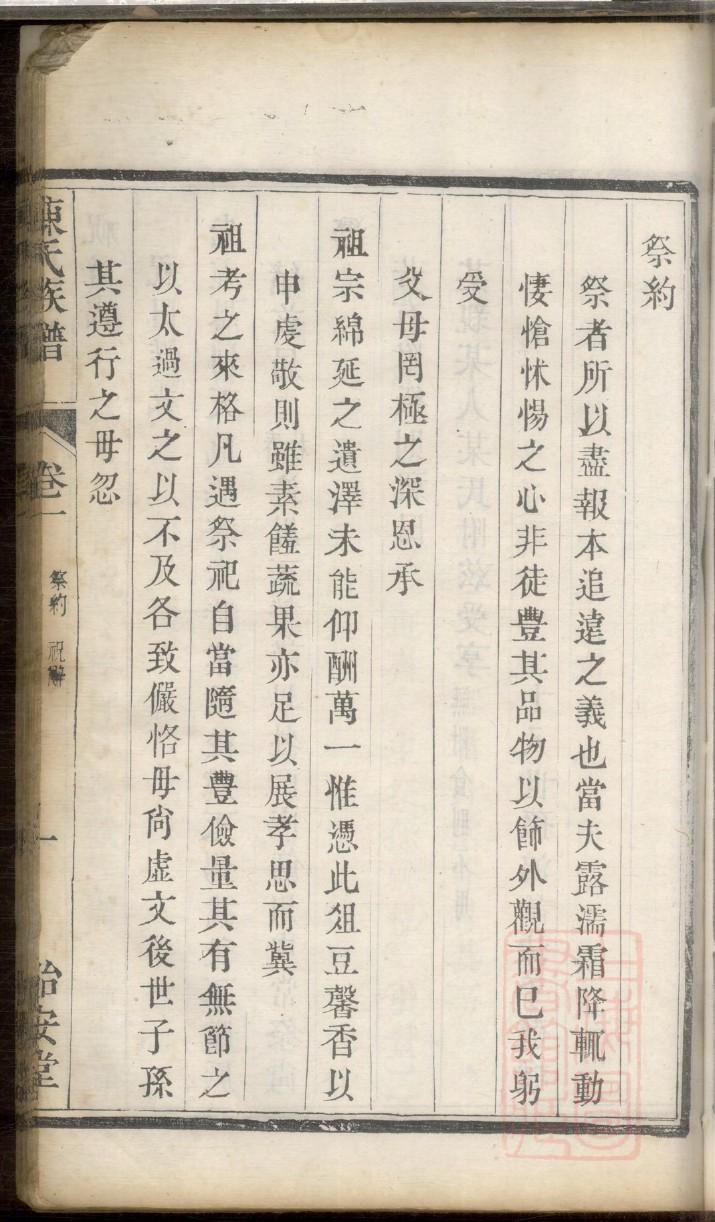 祭約
祭者所以盡報本追遠之義也當夫露濡霜降輒動
悽愴怵惕之心非徒豐其品物以飾外觀而已我躬
受
父母罔極之深恩承
祖宗綿延之遺澤未能仰酬萬一惟憑此俎豆馨香以
申虔敬則雖素饈蔬果亦足以展孝思而冀
祖考之來格凡遇祭祀自當隨其豐儉量其有無節之
以太過文之以不及各致儼恪毋尙虛文後世子孫
其遵行之毋忽
陳氏族譜
卷一
祭約 祝辭
一
治安堂